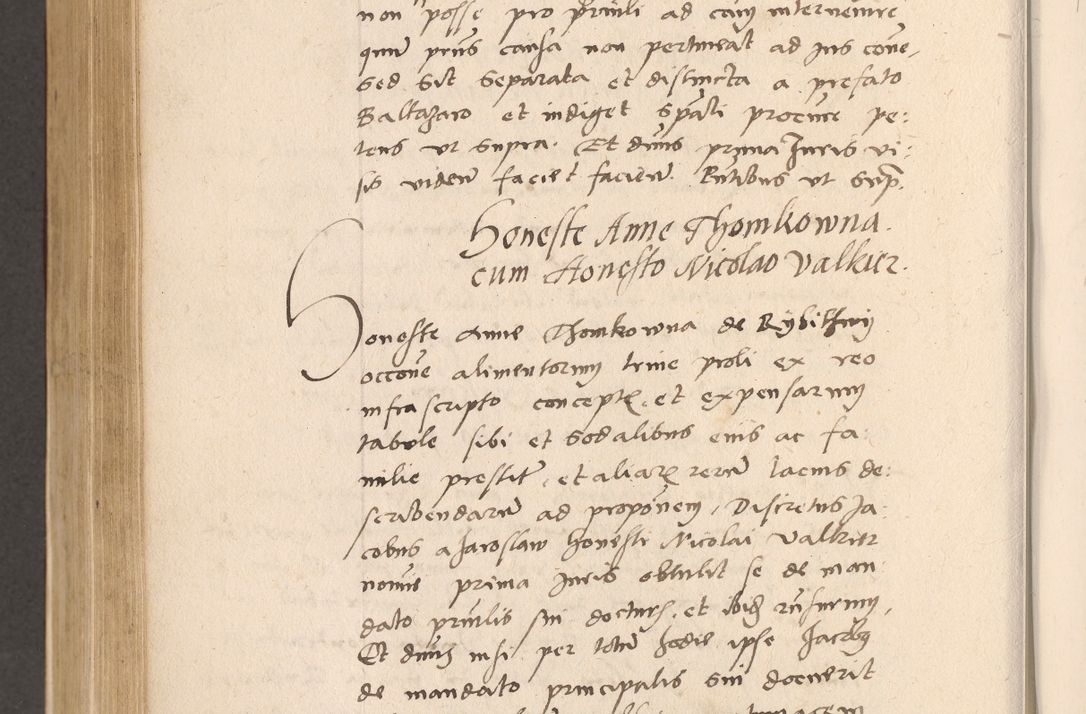 non posse pro prnli ad cam interuenire
quin prius causa non pertineat ad ius conē,
sed sit separata et distincta a prefato
Baltazaro et indiget spāli procūre pe:
tens ut supra. Et dnus prima Iuris vi:
sis viden faciet facien. Pntibus ut sup.
Honeste Anne Thomkowna.
cum Honesto Nicolao Valkier.
Honeste Anne Thomkowna de Rybithwy
occone alimentorum trine proli ex reo
infrascripto concepte, et expensarum
tabule sibi et sodalibus eius ac fa:
milie prestit, et aliar rerum lacius de:
scribendarum ad proponen, Discretus Ja:
cobus a Jaroslaw honesti Nicolai Valkier
nomine prima Iuris obtulit se de man:
dato prnlis sui doctur, et ibid
Et dnus nisi per totum hodie ipse Jacobus
de mandato principalis sui docuerit